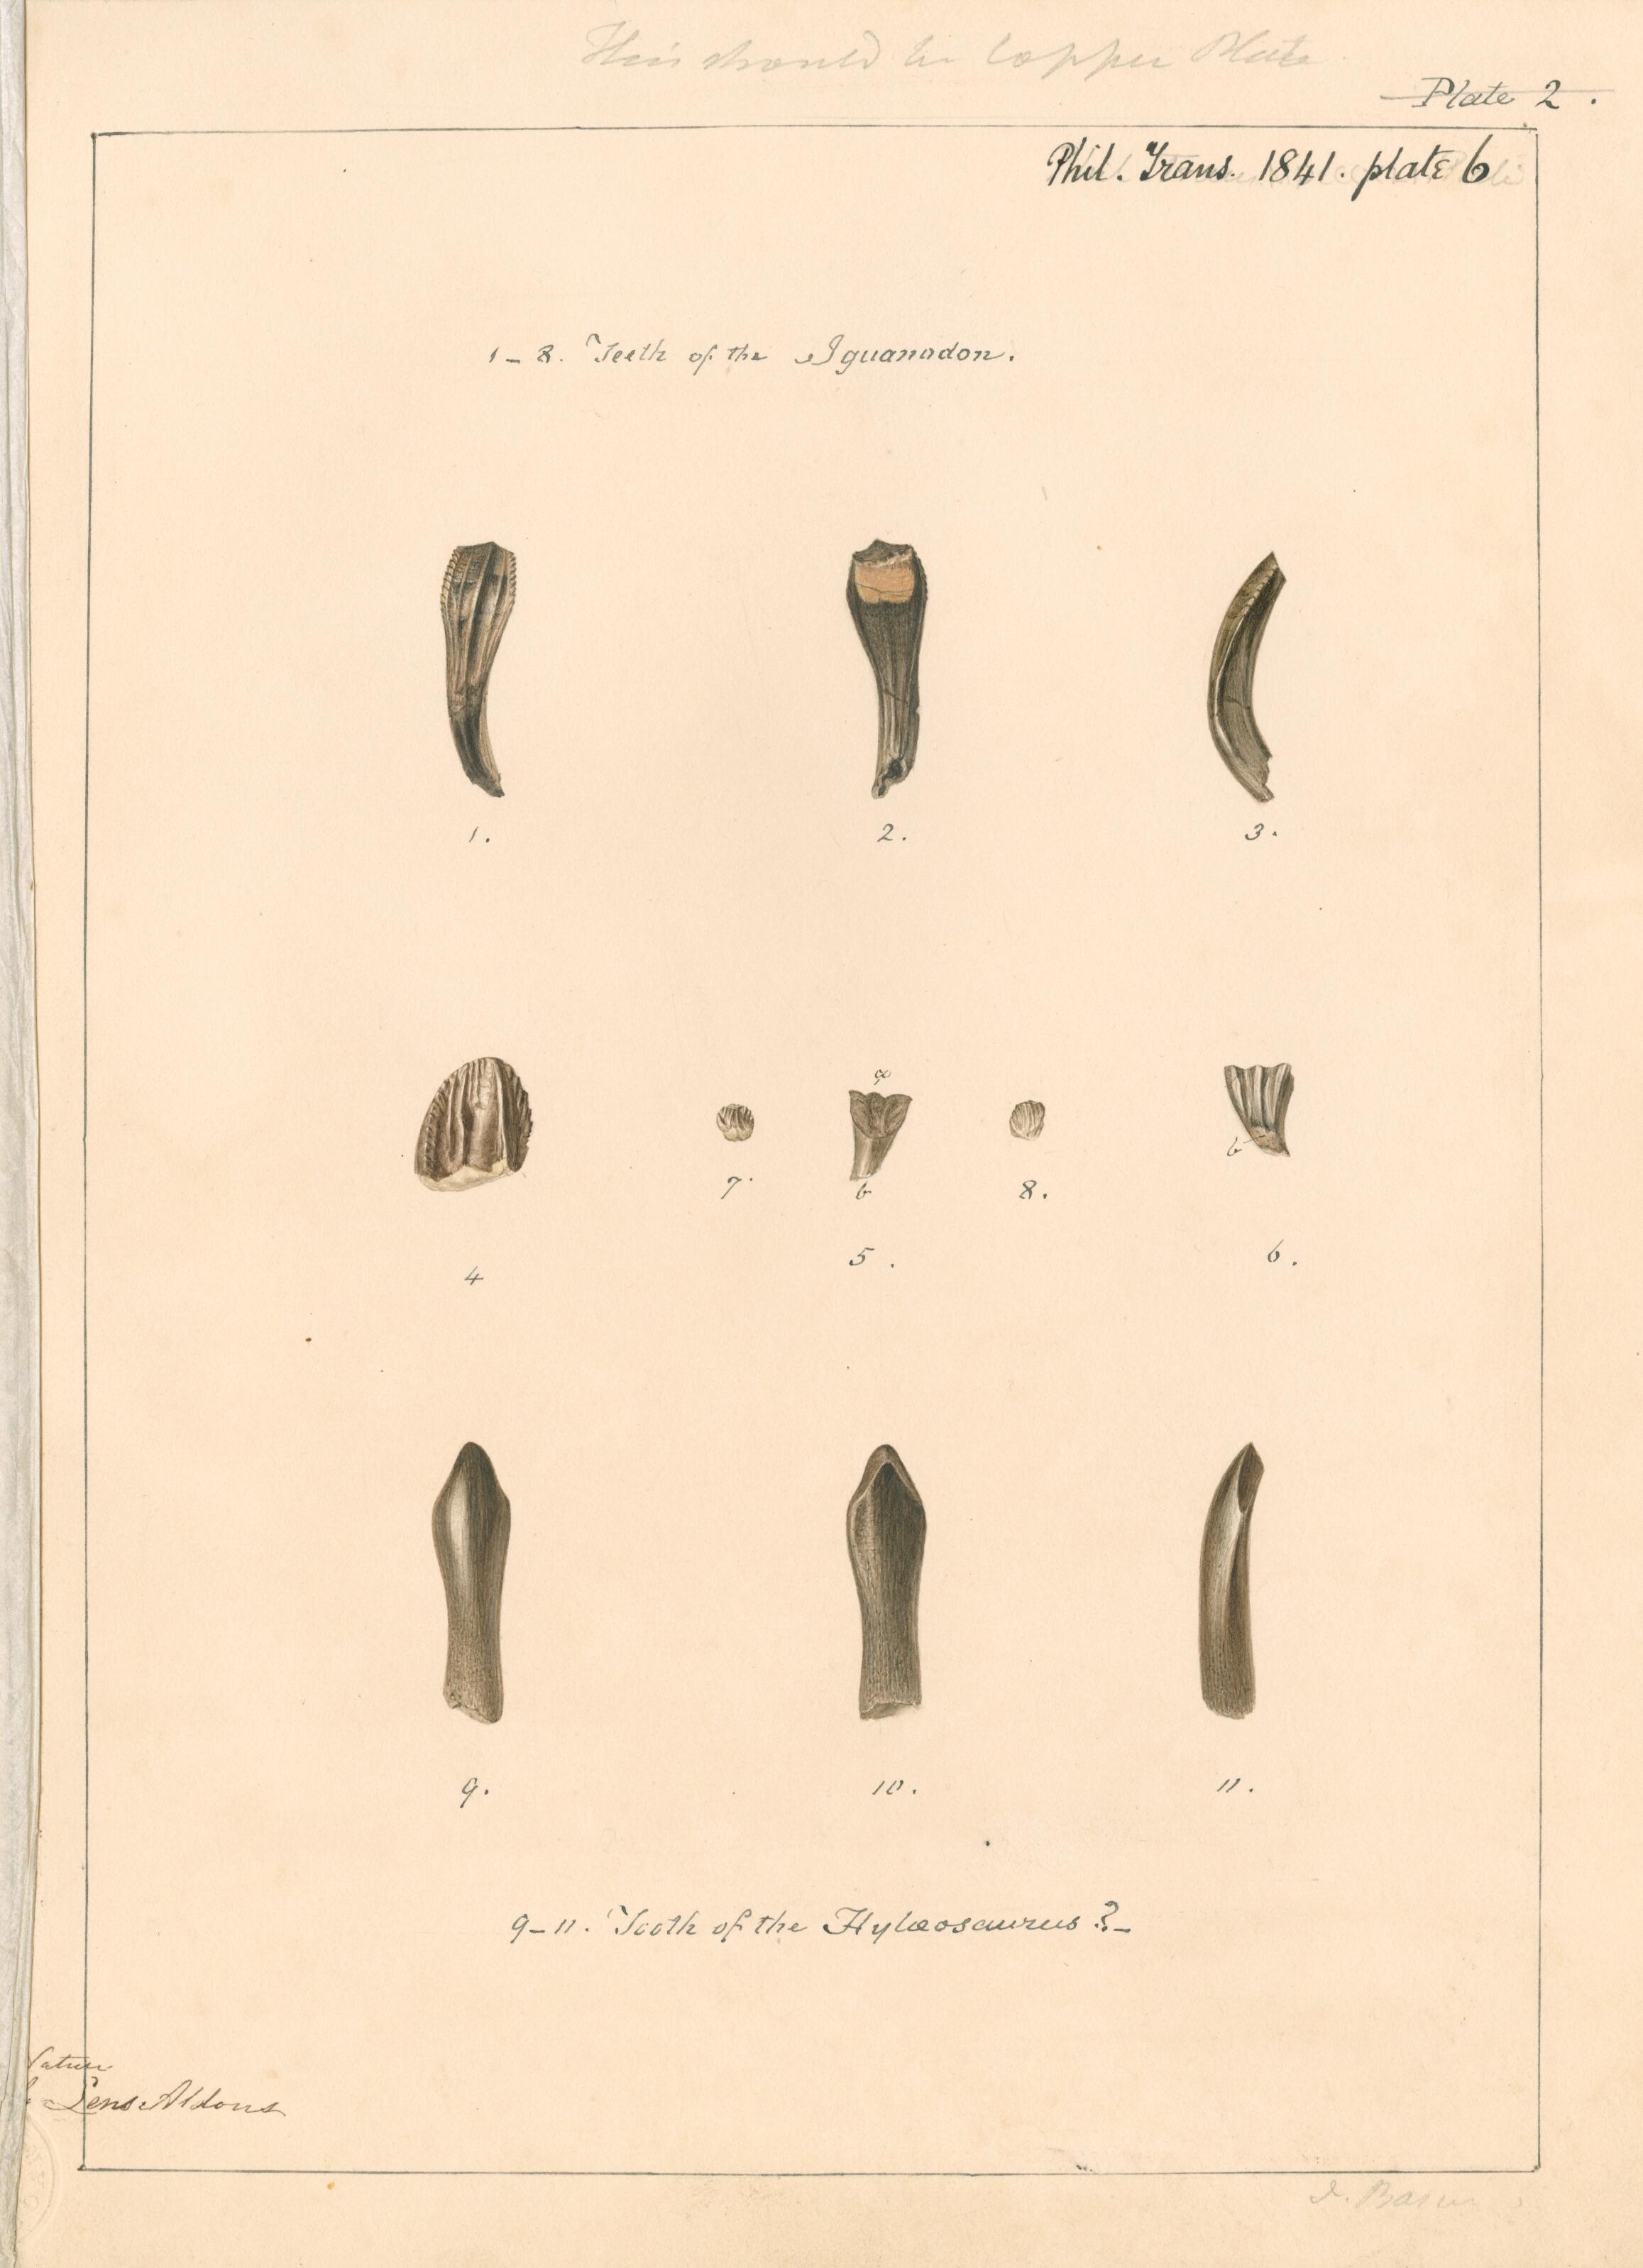 This should be Copper Plate
Plate 2.
Phil. Trans. 1841. plate 6
1-8. Teeth of the Iguanodon.
1.
2.
3.
a
b
b
7.
8.
4
5.
6.
9.
10.
11.
9-11. Tooth of the Hylæosaurus?-
Nature
Lens Aldous